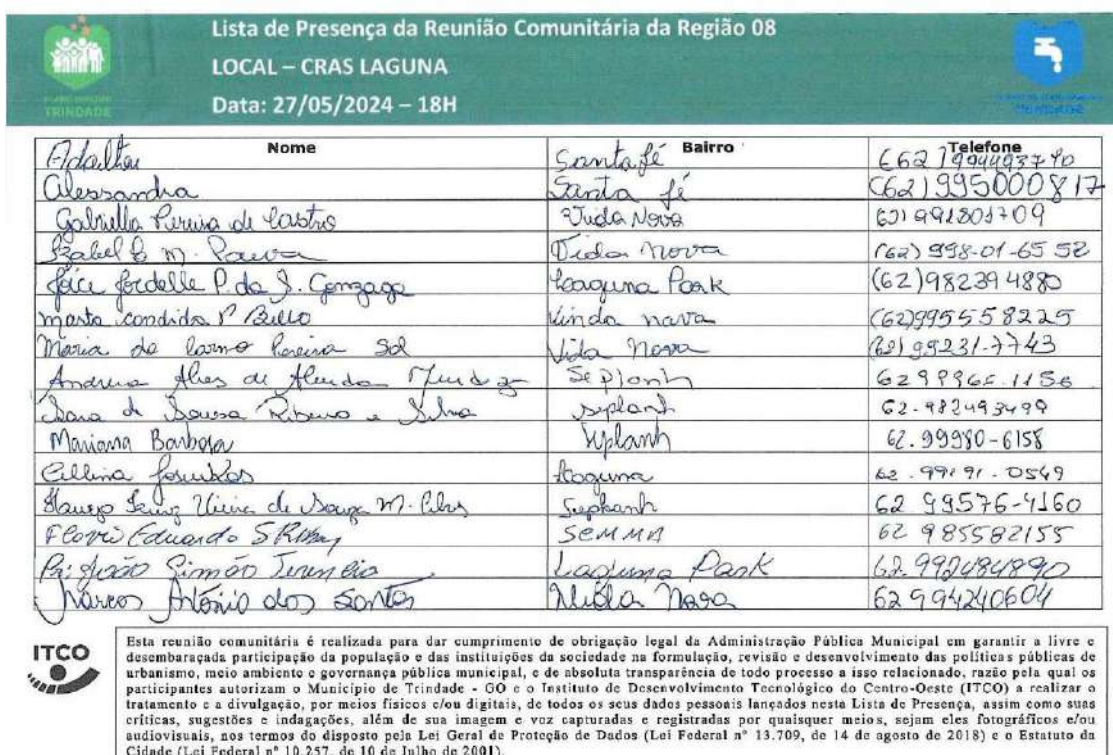 Lista de Presença da Reunião Comunitária da Região 08
LOCAL – CRAS LAGUNA
Data: 27/05/2024 – 18H
TRINDADE
Nome Bairro Telefone
Santa fé
Alessandra Santa fé (62) 995000817
Gabriella Pereira de Castro Vida Nova 991801709
Izabel M. Vida Nova (62) 998-01-65 52
P. da S. Gonzaga Laguna Park (62)982394880
marta condida P Bello nava (62)995558225
Maria do Carmo Pereira Sol Vida Nova 99231-7743
Alves de Almeida Seplanh
de Sousa Ribeiro e Silva seplanh 62-982493499
Mariana Barbosa Seplanh 62.99980-6158
Laguna 62.99191-0549
Vieira de Souza M. Seplanh 62 99576-4160
Flavio Eduardo SEMMA 62 985582155
João Simão Laguna Park 62.992484890
Marcos Antônio dos Santos Nova 62 994240604
ITCO
Esta reunião comunitária é realizada para dar cumprimento de obrigação legal da Administração Pública Municipal em garantir a livre e
desembaraçada participação da população e das instituições da sociedade na formulação, revisão e desenvolvimento das políticas públicas de
urbanismo, meio ambiente e governança pública municipal, e de absoluta transparência de todo processo a isso relacionado, razão pela qual os
participantes autorizam o Município de Trindade - GO e o Instituto de Desenvolvimento Tecnológico do Centro-Oeste (ITCO) a realizar o
tratamento e a divulgação, por meios físicos e/ou digitais, de todos os seus dados pessoais lançados nesta Lista de Presença, assim como suas
críticas, sugestões e indagações, além de sua imagem e voz capturadas e registradas por quaisquer meios, sejam eles fotográficos e/ou
audiovisuais, nos termos do disposto pela Lei Geral de Proteção de Dados (Lei Federal nº 13.709, de 14 de agosto de 2018) e o Estatuto da
Cidade (Lei Federal nº 10.257, de 10 de Julho de 2001).